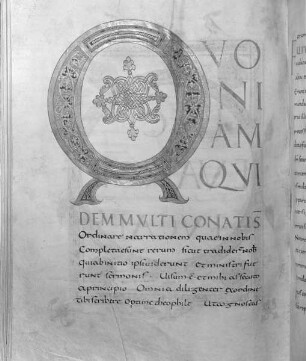 QVO
NI
AM
QVI
DEM MVLTI CONATI S̄
Ordinare narrationem quae in nobis
Completae sunt rerum sicut tradider nob
qui ab initio ipsi uiderunt et ministri fue
runt sermonis Uisum est et mihi assecuto
a principio Omnia diligenter ex ordine
tibi scribere Optime theophile Ut cognoscas